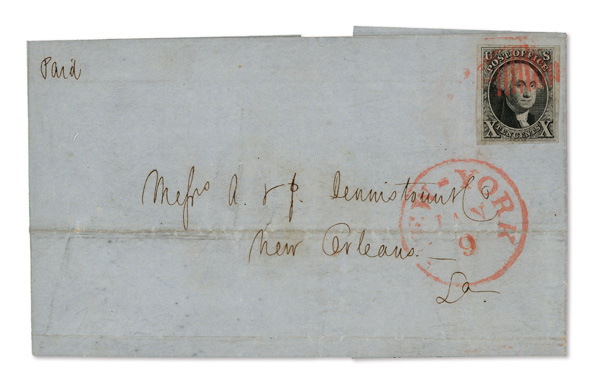 Paid
U S
POST OFFICE
X TEN CENTS X
NEW-YORK
JAN
9
Messrs A. & J. Dennistoun & Co
New Orleans.
La.